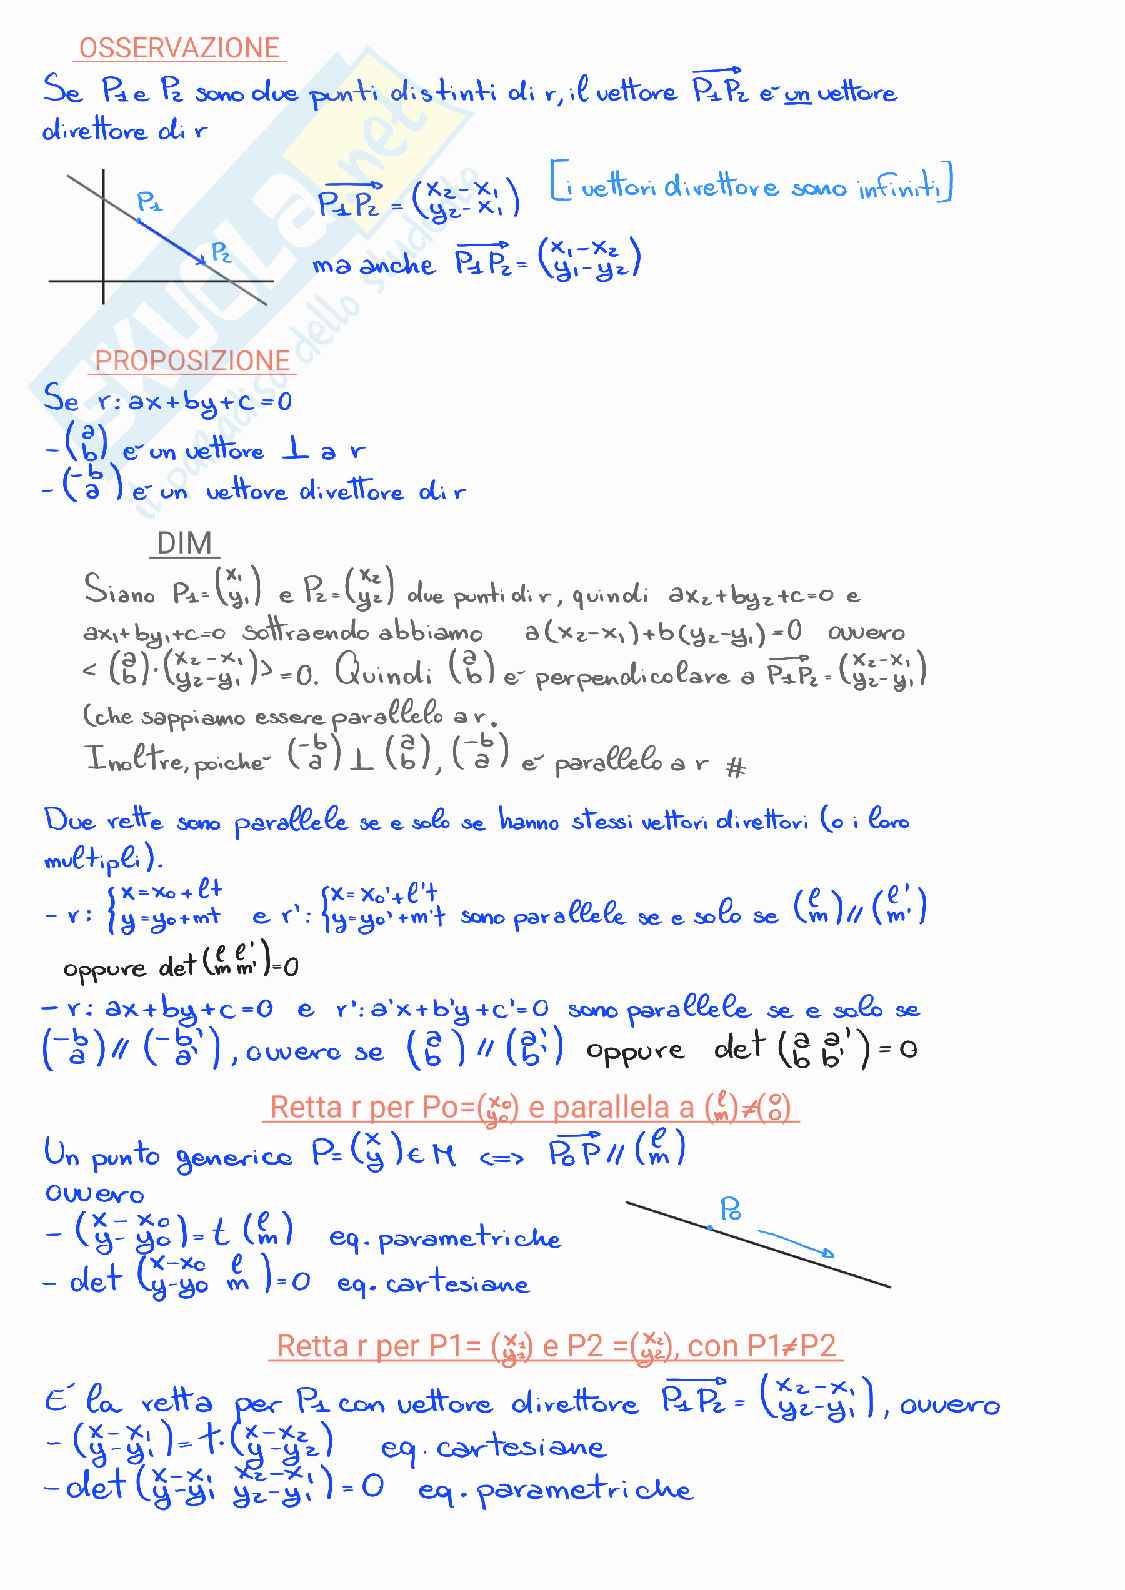 OSSERVAZIONE
Se P₁ e P₂ sono due punti distinti di r, il vettore P₁P₂ e- un vettore
direttore di r
P₁
P₂
P₁P₂ = (x₂-x₁ / y₂-x₁) [i vettori direttore sono infiniti]
ma anche P₁P₂ = (x₁-x₂ / y₁-y₂)
SKUOLA.net
il paradiso dello studente
PROPOSIZIONE
Se r: ax+by+c=0
- (a / b) e- un vettore ⊥ a r
- (-b / a) e- un vettore direttore di r
DIM
Siano P₁=(x₁ / y₁) e P₂=(x₂ / y₂) due punti di r, quindi ax₂+by₂+c=0 e
ax₁+by₁+c=0 sottraendo abbiamo a(x₂-x₁)+b(y₂-y₁)=0 ovvero
<(a / b)·(x₂-x₁ / y₂-y₁)>=0. Quindi (a / b) e- perpendicolare a P₁P₂=(x₂-x₁ / y₂-y₁)
(che sappiamo essere parallelo a r.
Inoltre, poiche- (-b / a) ⊥ (a / b), (-b / a) e- parallelo a r #
Due rette sono parallele se e solo se hanno stessi vettori direttori (o i loro
multipli).
- r: {x=x₀+lt / y=y₀+mt e r': {x=x₀'+l't / y=y₀'+m't sono parallele se e solo se (l / m) // (l' / m')
oppure det(l l' / m m')=0
- r: ax+by+c=0 e r': a'x+b'y+c'=0 sono parallele se e solo se
(-b / a) // (-b' / a'), ovvero se (a / b) // (a' / b') oppure det(a a' / b b')=0
Retta r per Po=(x₀ / y₀) e parallela a (l / m)≠(0 / 0)
Un punto generico P=(x / y)∈M <=> P₀P // (l / m)
ovvero
- (x-x₀ / y-y₀)=t(l / m) eq. parametriche
- det(x-x₀ l / y-y₀ m)=0 eq. cartesiane
P₀
Retta r per P1= (x₁ / y₁) e P2 =(x₂ / y₂), con P1≠P2
E' la retta per P₁ con vettore direttore P₁P₂=(x₂-x₁ / y₂-y₁), ovvero
- (x-x₁ / y-y₁)=t·(x-x₂ / y-y₂) eq. cartesiane
- det(x-x₁ x₂-x₁ / y-y₁ y₂-y₁)=0 eq. parametriche